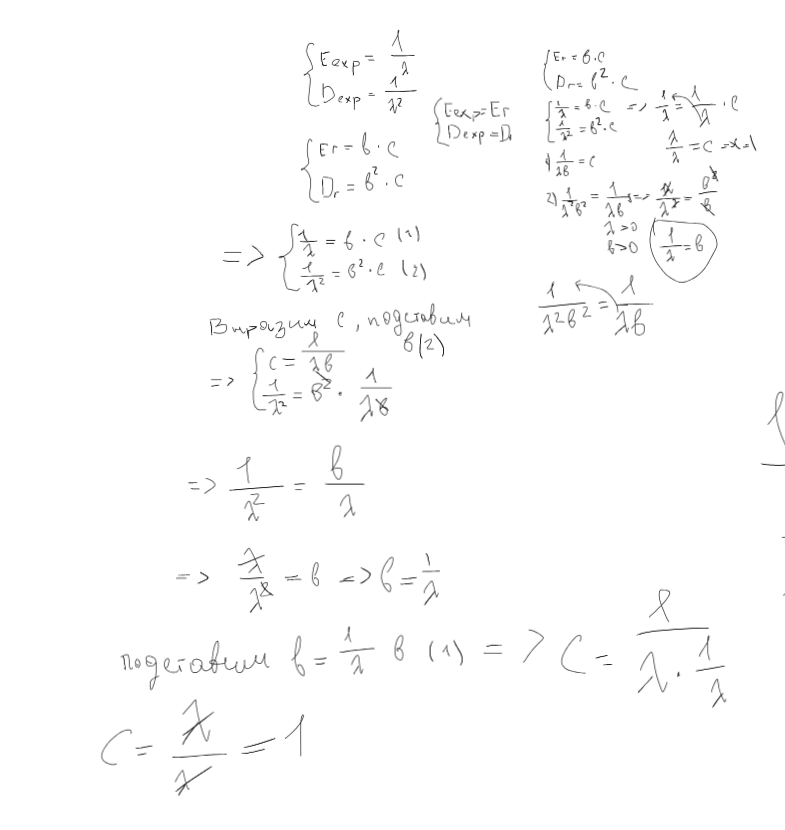 { Eexp = 1/λ
{ Dexp = 1/λ²
{ Eexp = Er
{ Dexp = D
{ Er = b · c
{ Dr = b² · c
=> { 1/λ = b · c (1)
{ 1/λ² = b² · c (2)
Выразим c, подставим
в (2)
=> { c = 1/λb
{ 1/λ² = b² · 1/λb
=> 1/λ² = b/λ
=> λ/λ² = b => b = 1/λ
подставим b = 1/λ в (1) => c = 1/(λ · 1/λ)
c = λ/λ = 1
{ Er = b · c
{ Dr = b² · c
{ 1/λ = b · c => 1/λ = 1/λ · c
{ 1/λ² = b² · c
λ/λ = c => 1
1) 1/λb = c
2) 1/λ²b² = 1/λb => λ/λ² = b²/b
λ > 0
b > 0
1/λ = b
1/λ²b² = 1/λb